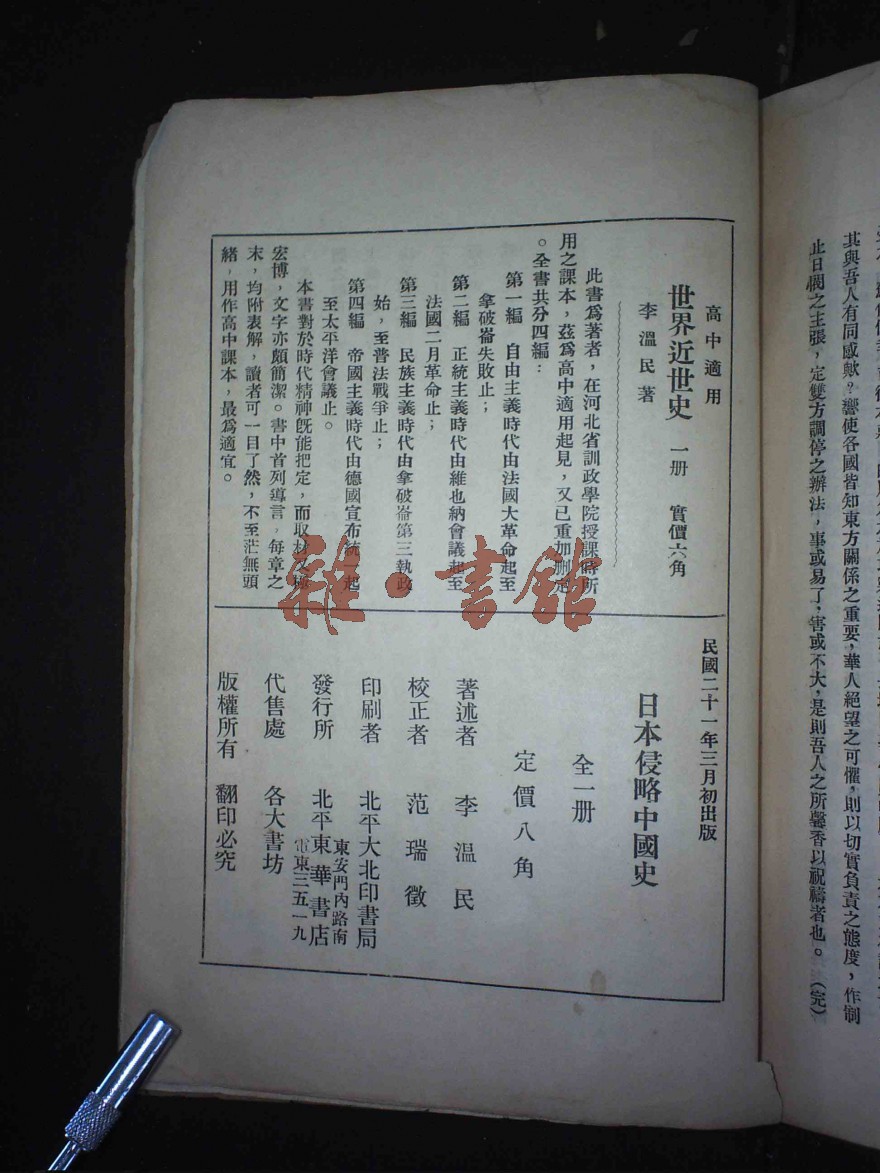 其與吾人有同感歟？嚮使各國皆知東方關係之重要，華人絕望之可懼，則以切實負責之態度，作制
止日閥之主張，定雙方調停之辦法，事或易了，害或不大，是則吾人之所馨香以祝禱者也。（完）
高中適用
世界近世史 一册 實價六角
李溫民著
此書爲著者，在河北省訓政學院授課時所
用之課本，茲爲高中適用起見，又已重加刪定
。全書共分四編：
第一編 自由主義時代由法國大革命起至
拿破崙失敗止；
第二編 正統主義時代由維也納會議起至
法國二月革命止；
第三編 民族主義時代由拿破崙第三執政
始，至普法戰爭止；
第四編 帝國主義時代由德國宣布統一起
至太平洋會議止。
本書對於時代精神旣能把定，而取材又極
宏博，文字亦頗簡潔。書中首列導言，每章之
末，均附表解，讀者可一目了然，不至茫無頭
緒，用作高中課本，最爲適宜。
民國二十一年三月初出版
日本侵略中國史
全一册
定價八角
著述者 李溫民
校正者 范瑞徵
印刷者 北平大北印書局
發行所 北平東華書店
東安門內路南
電東三五一九
代售處 各大書坊
版權所有 翻印必究
雜·書館